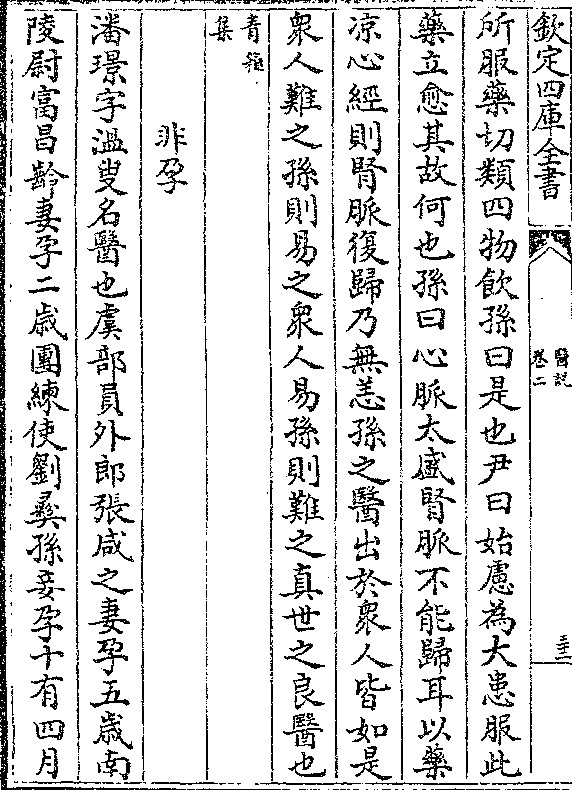 欽定四庫全書
醫說
卷二
三十二
所服藥切類四物飲孫曰是也尹曰始慮為大患服此
藥立愈其故何也孫曰心脈太盛腎脈不能歸耳以藥
凉心經則腎脈復歸乃無恙孫之醫出於衆人皆如是
衆人難之孫則易之衆人易孫則難之真世之良醫也
青箱
集
非孕
潘璟字溫叟名醫也虞部員外郎張咸之妻孕五歲南
陵尉富昌齡妻孕二歲團練使劉彛孫妾孕十有四月